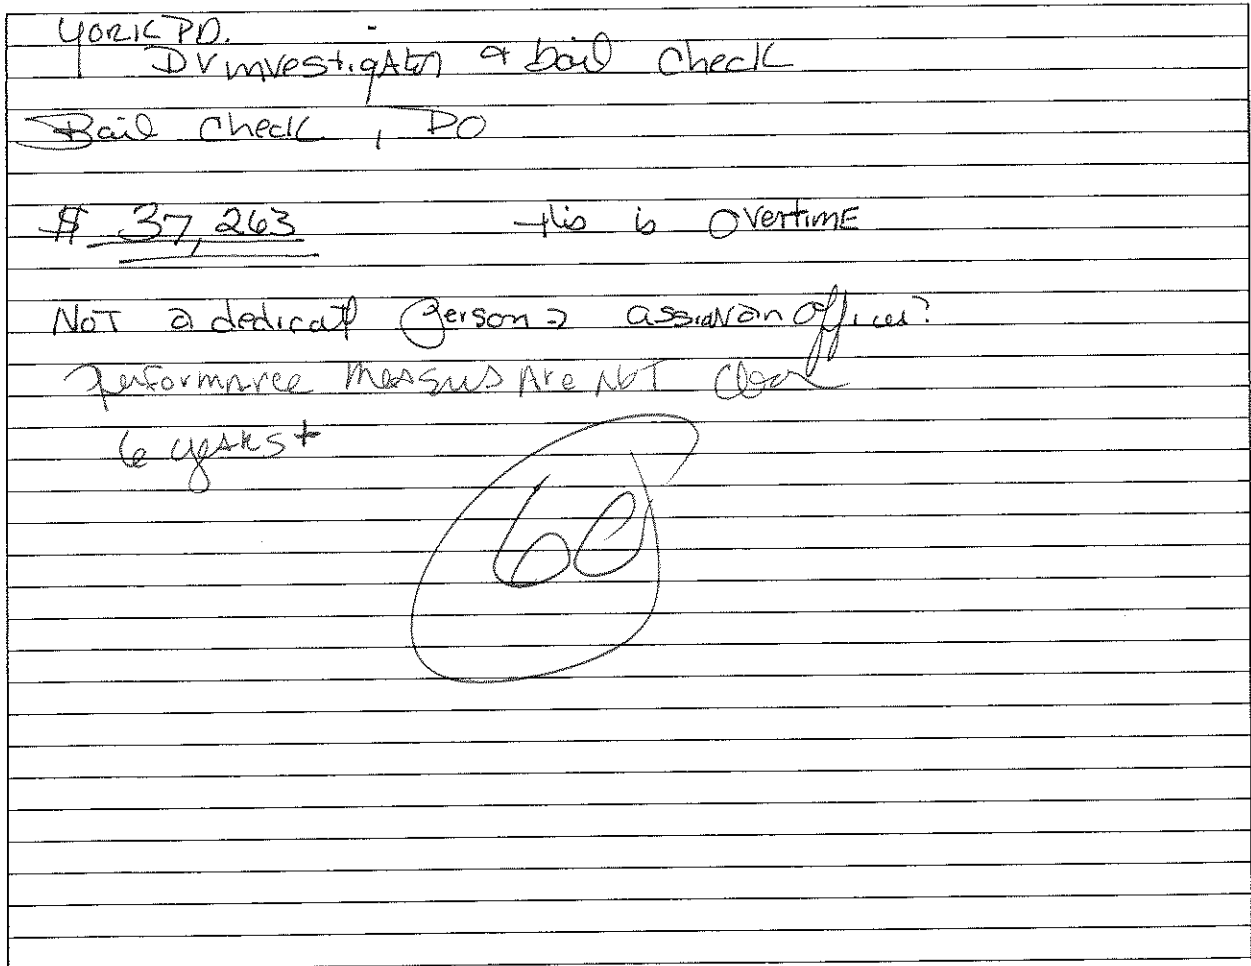 York PD.
DV investigator & bail check
Bail check, PO
$ 37,263 this is Overtime
NOT a dedicat person = assign an officer?
Performance measus Are NOT Clear
6 years +
60